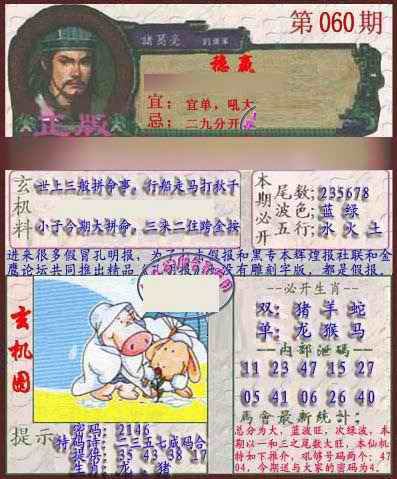 第060期
諸葛亮
劉軍軍
稳赢
宜：宜单，吼大
忌：二九分开
正版
玄机料
世上三般拼命事，行船走马打秋千
小子今期大拼命，三来二往跨金按
本期必开
尾数;235678
波色;蓝 绿
五行;水 火 土
进来很多假冒孔明报，为了
假报和黑专本辉煌报社联和金
鹰论坛共同推出精品
没有雕刻字版，都是假报。
玄机图
--必开生肖--
双: 猪 羊 蛇
单: 龙 猴 马
--内部泄码--
11 23 47 15 27
05 41 06 26 40
馬會最新統計:
总分为大，蓝波旺，次绿波，本
期以一和三之尾数大旺，本仙机
特如下推介，吼够号码两个: 47
04，今期送与大家的密码为4.
提示
密码: 2146
特码诗: 二三五七成码合
提供: 35 43 38 17
生肖: 龙、猪